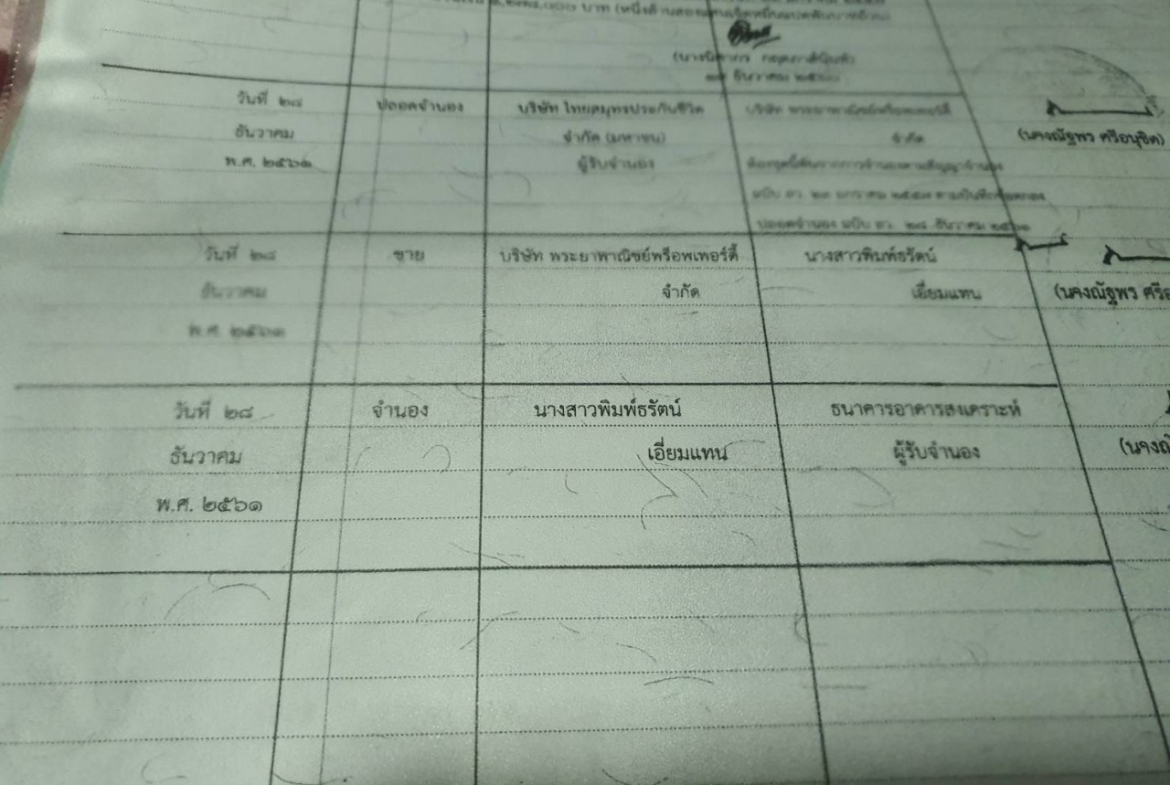 บาท (หนึ่งล้านสองแสนเจ็ดหมื่นแปดพันบาทถ้วน)
ธันวาคม
วันที่ ๒๘ ปลอดจำนอง บริษัท ไทยสมุทรประกันชีวิต บริษัท พระยาพาณิชย์พร็อพเพอร์ตี้
ธันวาคม จำกัด (มหาชน) จำกัด (นางณัฐพร ศรีอนุชิต)
พ.ศ. ๒๕๖๑ ผู้รับจำนอง
ปลอดจำนอง ฉบับ ลว. ๒๘ ธันวาคม ๒๕๖๑
วันที่ ๒๘ ขาย บริษัท พระยาพาณิชย์พร็อพเพอร์ตี้ นางสาวพิมพ์ธรัตน์
ธันวาคม จำกัด เอี่ยมแทน (นางณัฐพร ศรีอ
พ.ศ. ๒๕๖๑
วันที่ ๒๘ จำนอง นางสาวพิมพ์ธรัตน์ ธนาคารอาคารสงเคราะห์
ธันวาคม เอี่ยมแทน ผู้รับจำนอง (นางณั
พ.ศ. ๒๕๖๑